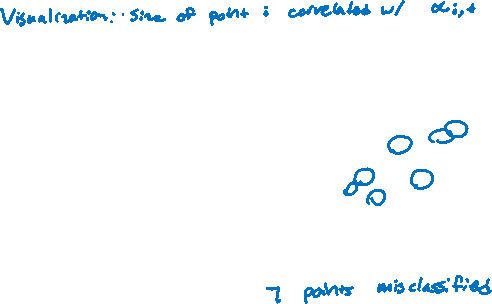 Visualization: Size of point i correlated w/ αi,t
7 points misclassified